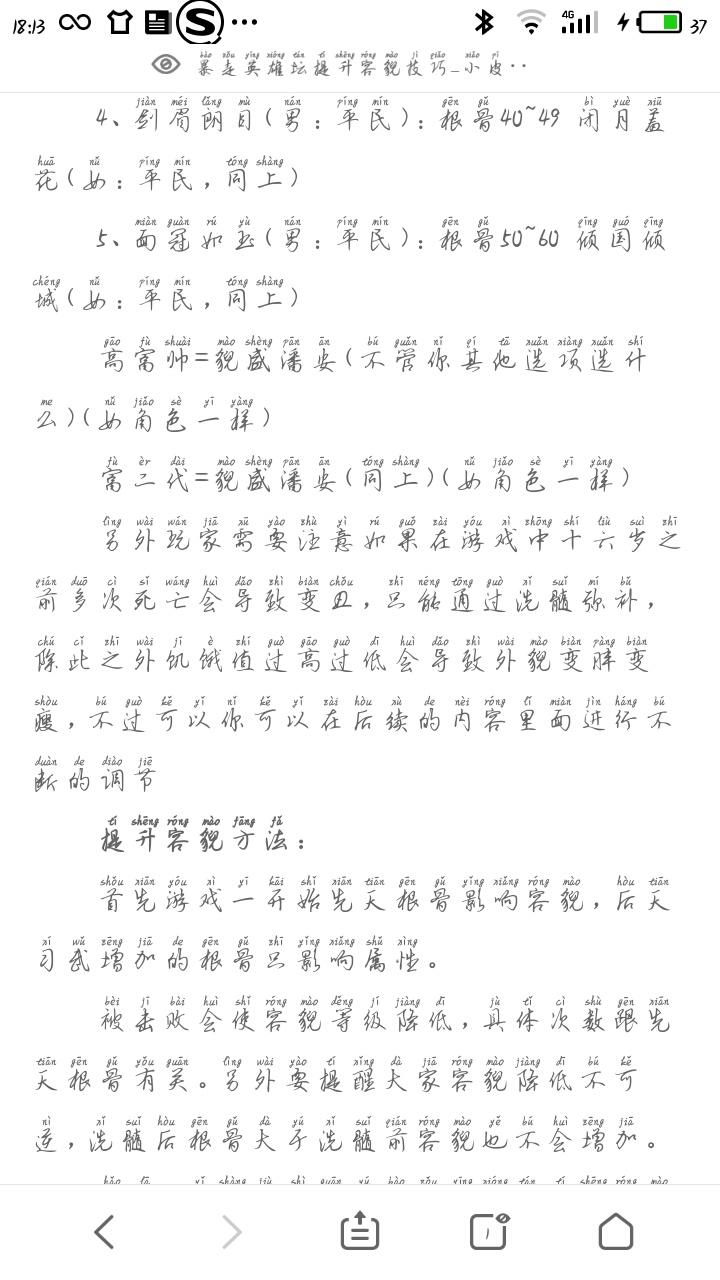 18:13 4G 37
暴走英雄坛提升容貌技巧_小皮··
4、剑眉朗目(男：平民)：根骨40~49 闭月羞
花(女：平民，同上)
5、面冠如玉(男：平民)：根骨50~60 倾国倾
城(女：平民，同上)
高富帅=貌盛潘安(不管你其他选项选什
么)(女角色一样)
富二代=貌盛潘安(同上)(女角色一样)
另外玩家需要注意如果在游戏中十六岁之
前多次死亡会导致变丑，只能通过洗髓弥补，
除此之外饥饿值过高过低会导致外貌变胖变
瘦，不过可以你可以在后续的内容里面进行不
断的调节
提升容貌方法：
首先游戏一开始先天根骨影响容貌，后天
习武增加的根骨只影响属性。
被击败会使容貌等级降低，具体次数跟先
天根骨有关。另外要提醒大家容貌降低不可
逆，洗髓后根骨大于洗髓前容貌也不会增加。